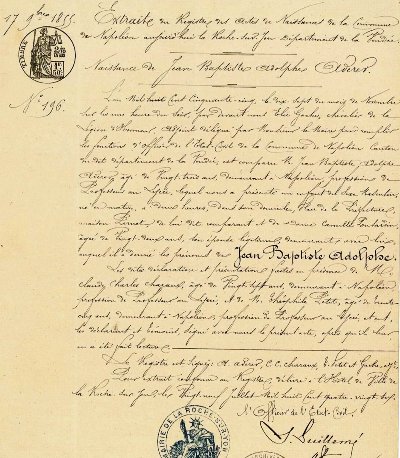 17 9bre 1855.
Extrait du Registre des Actes de Naissance de la Commune
de Napoléon aujourd'hui la Roche-sur-Yon, département de la Vendée
Naissance de Jean Baptiste Adolphe Aderer
N° 196.
L'an Mil huit Cent Cinquante cinq, le dix sept du mois de Novembre
sur les heures du soir, par devant nous Elie Gache, chevalier de la
Légion d'Honneur, Adjoint délégué par Monsieur le Maire pour remplir
les fonctions d'officier de l'Etat Civil de la Commune de Napoléon Canton
du dit département de la Vendée, est comparu M. Jean Baptiste, Adolphe
Aderer, âgé de Vingt ans demeurant à Napoléon, profession de
Professeur au Lycée, lequel nous a présenté un enfant du sexe Masculin,
né ce matin, à deux heures, dans son domicile, Place de la Préfecture,
maison de lui dit comparant et de dame Camille
âgée de Vingt-deux ans, son épouse légitime, demeurant avec lui,
auquel il a donné les prénoms de Jean Baptiste Adolphe.
Les dites déclaration et présentation faites en présence de M.
Claude Charles Charaux, âgé de Vingt sept ans, demeurant à Napoléon
profession de Professeur au Lycée, et de M. Théophile Petit, âgé de
ans, demeurant à Napoléon, profession de Professeur au Lycée et ont,
les déclarant et témoins, signé avec nous le présent acte, après qu'il leur
en a été fait lecture.
Le Registre est signé: A. Aderer, C. C. Charaux, T. Petit et Gache, adjt.
Pour extrait conforme au Registre, délivré à l'Hôtel de Ville de
la Roche sur Yon, le Vingt neuf Juillet Mil huit Cent quatre vingt
L'Officier de l'Etat-Civil,
MAIRIE DE LA ROCHE-SUR-YON